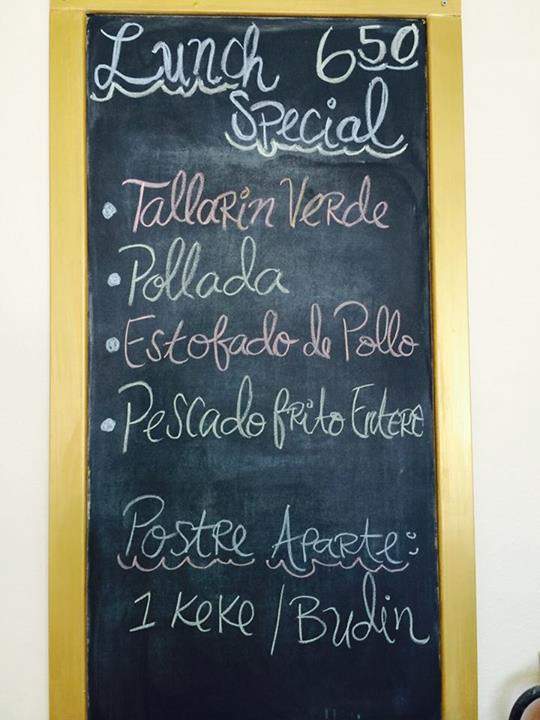 Lunch 6 50
Special
• Tallarin Verde
• Pollada
• Estofado de Pollo
• Pescado frito Entere
Postre Aparte:
1 Keke / Budin